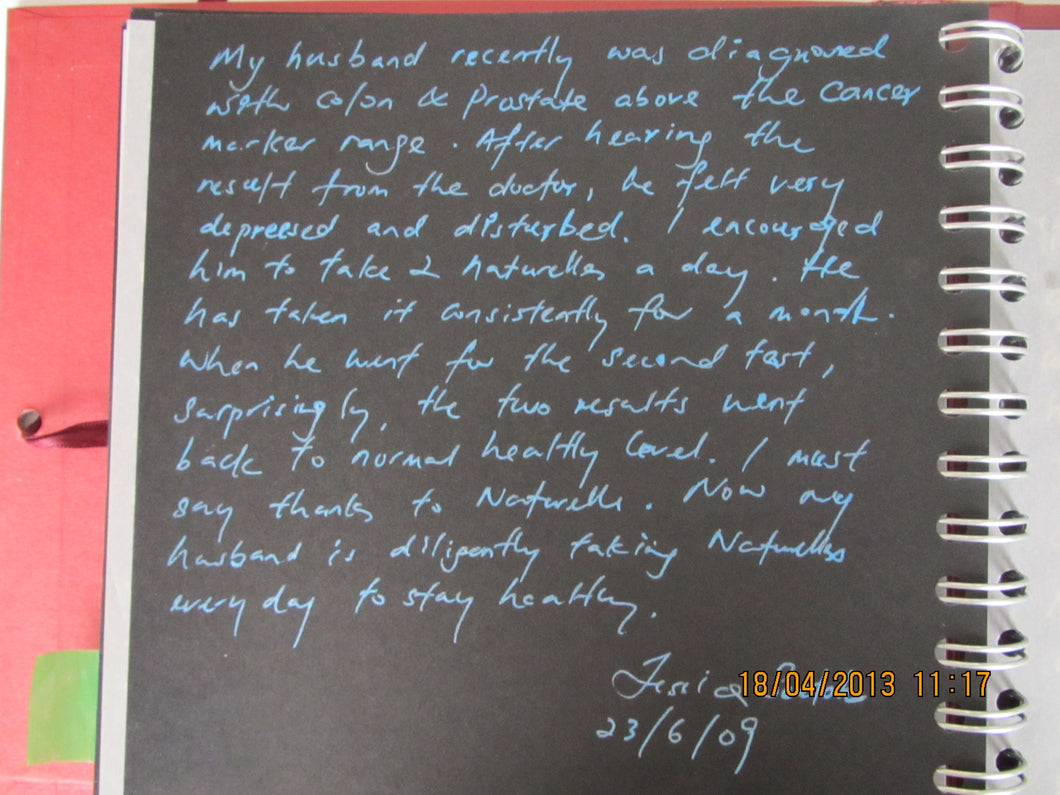 My husband recently was diagnosed
with colon & prostate above the cancer
marker range. After hearing the
result from the doctor, he felt very
depressed and disturbed. I encouraged
him to take 2 Naturelles a day. He
has taken it consistently for a month.
When he went for the second test,
surprisingly, the two results went
back to normal healthy level. I must
say thanks to Naturelle. Now my
husband is diligently taking Naturelles
every day to stay healthy.
Jessica
18/04/2013 11:17
23/6/09